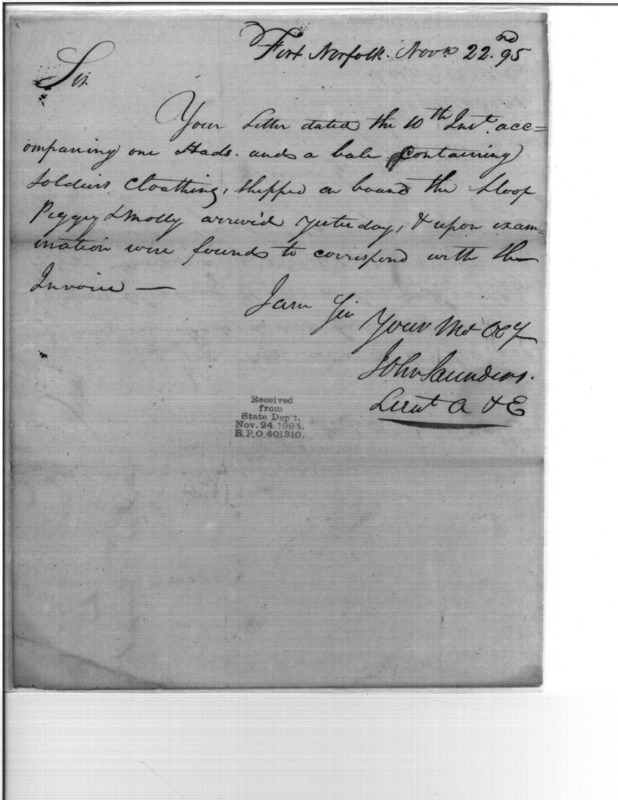 Fort Norfolk. Novr. 22nd 95
Sir
Your Letter dated the 10th Inst. acc=
ompaning one Hhds. and a bale Containing
Soldiers Cloathing, shipped on board the Sloop
Peggy & Molly arrived yesterday, & upon exam=
ination were found to correspond with the
Invoice —
I am Sir
Your Mo Obt
John Saunders.
Lieut A & E
Received
from
State Dep't.
Nov. 24, 1894,
R.P.O. 401310.